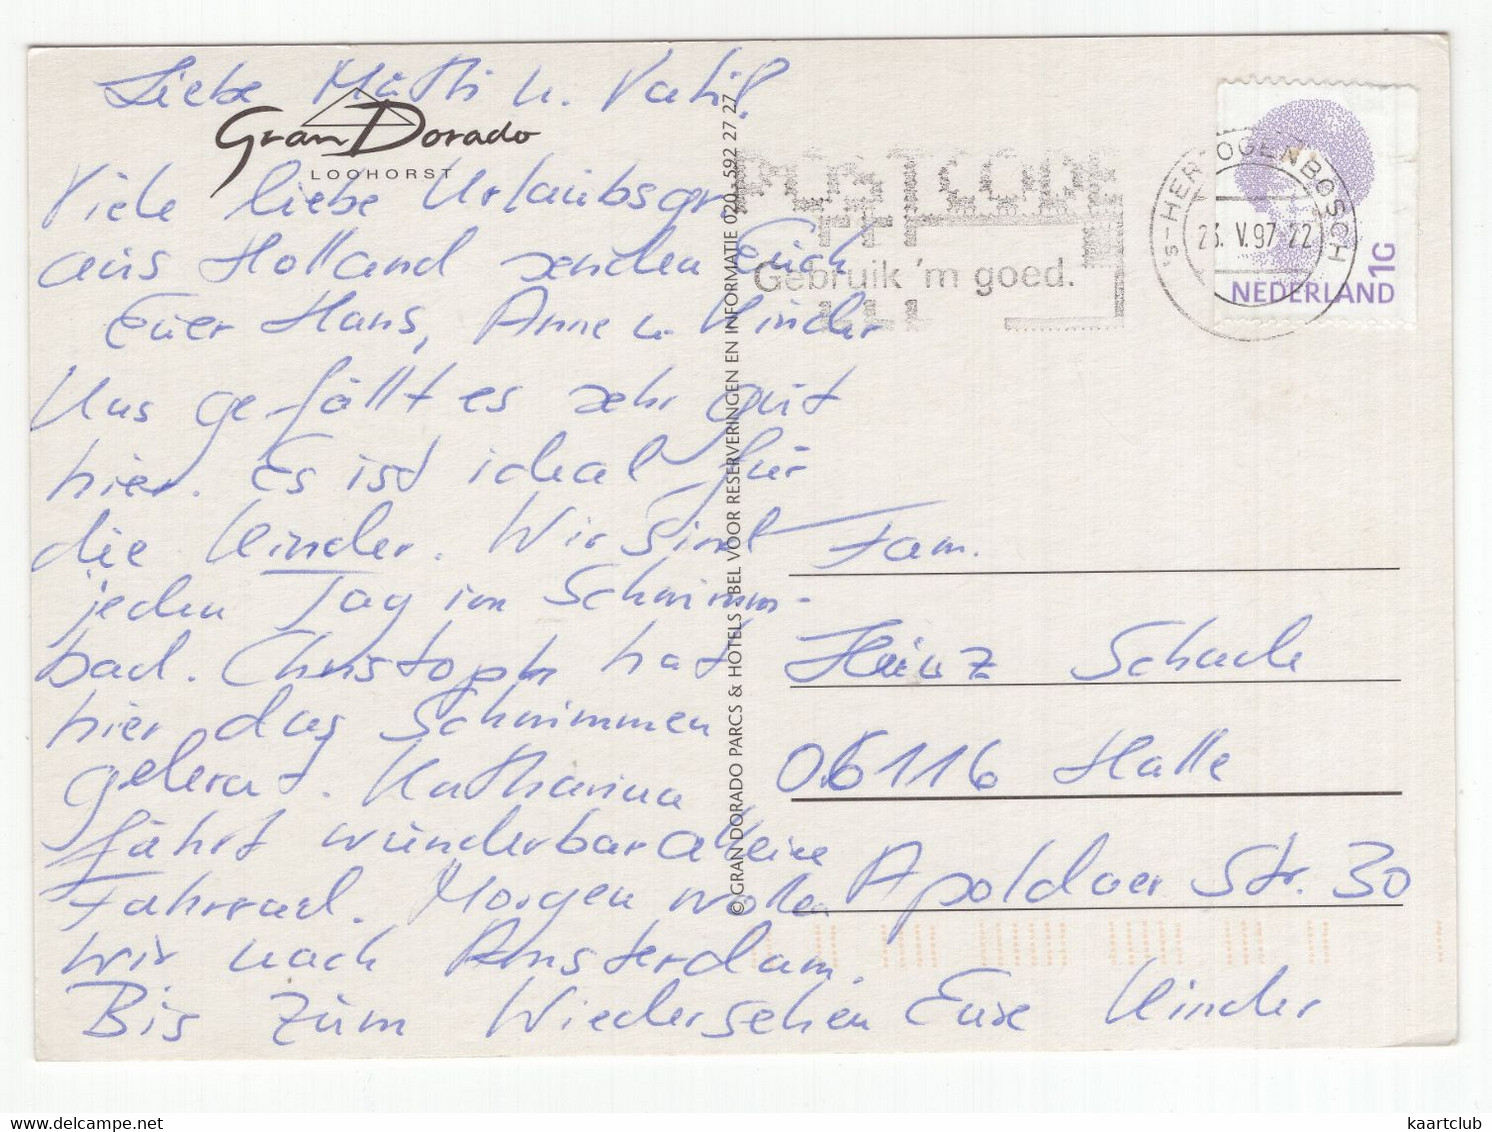 Liebe Mutti u. Vati!
Gran Dorado
LOOHORST
Viele liebe Urlaubsgr.
aus Holland senden Euch
Euer Hans, Anne u. Kinder
Uns gefällt es sehr gut
hier. Es ist ideal für
die Kinder. Wir sind
jeden Tag im Schwimm-
bad. Christoph hat
hier das Schwimmen
gelernt. Katharina
fährt wunderbar alleine
Fahrrad. Morgen wollen
wir nach Amsterdam.
Bis zum Wiedersehen Eure Kinder
© GRAN DORADO PARCS & HOTELS - BEL VOOR RESERVERINGEN EN INFORMATIE 020 - 592 27 27
POSTCODE
Gebruik 'm goed.
's-HERTOGENBOSCH
23. V. 97 22
NEDERLAND 1G
Fam.
Heinz Schade
06116 Halle
Apoldaer Str. 30
https://www.delcampe.net
kaartclub